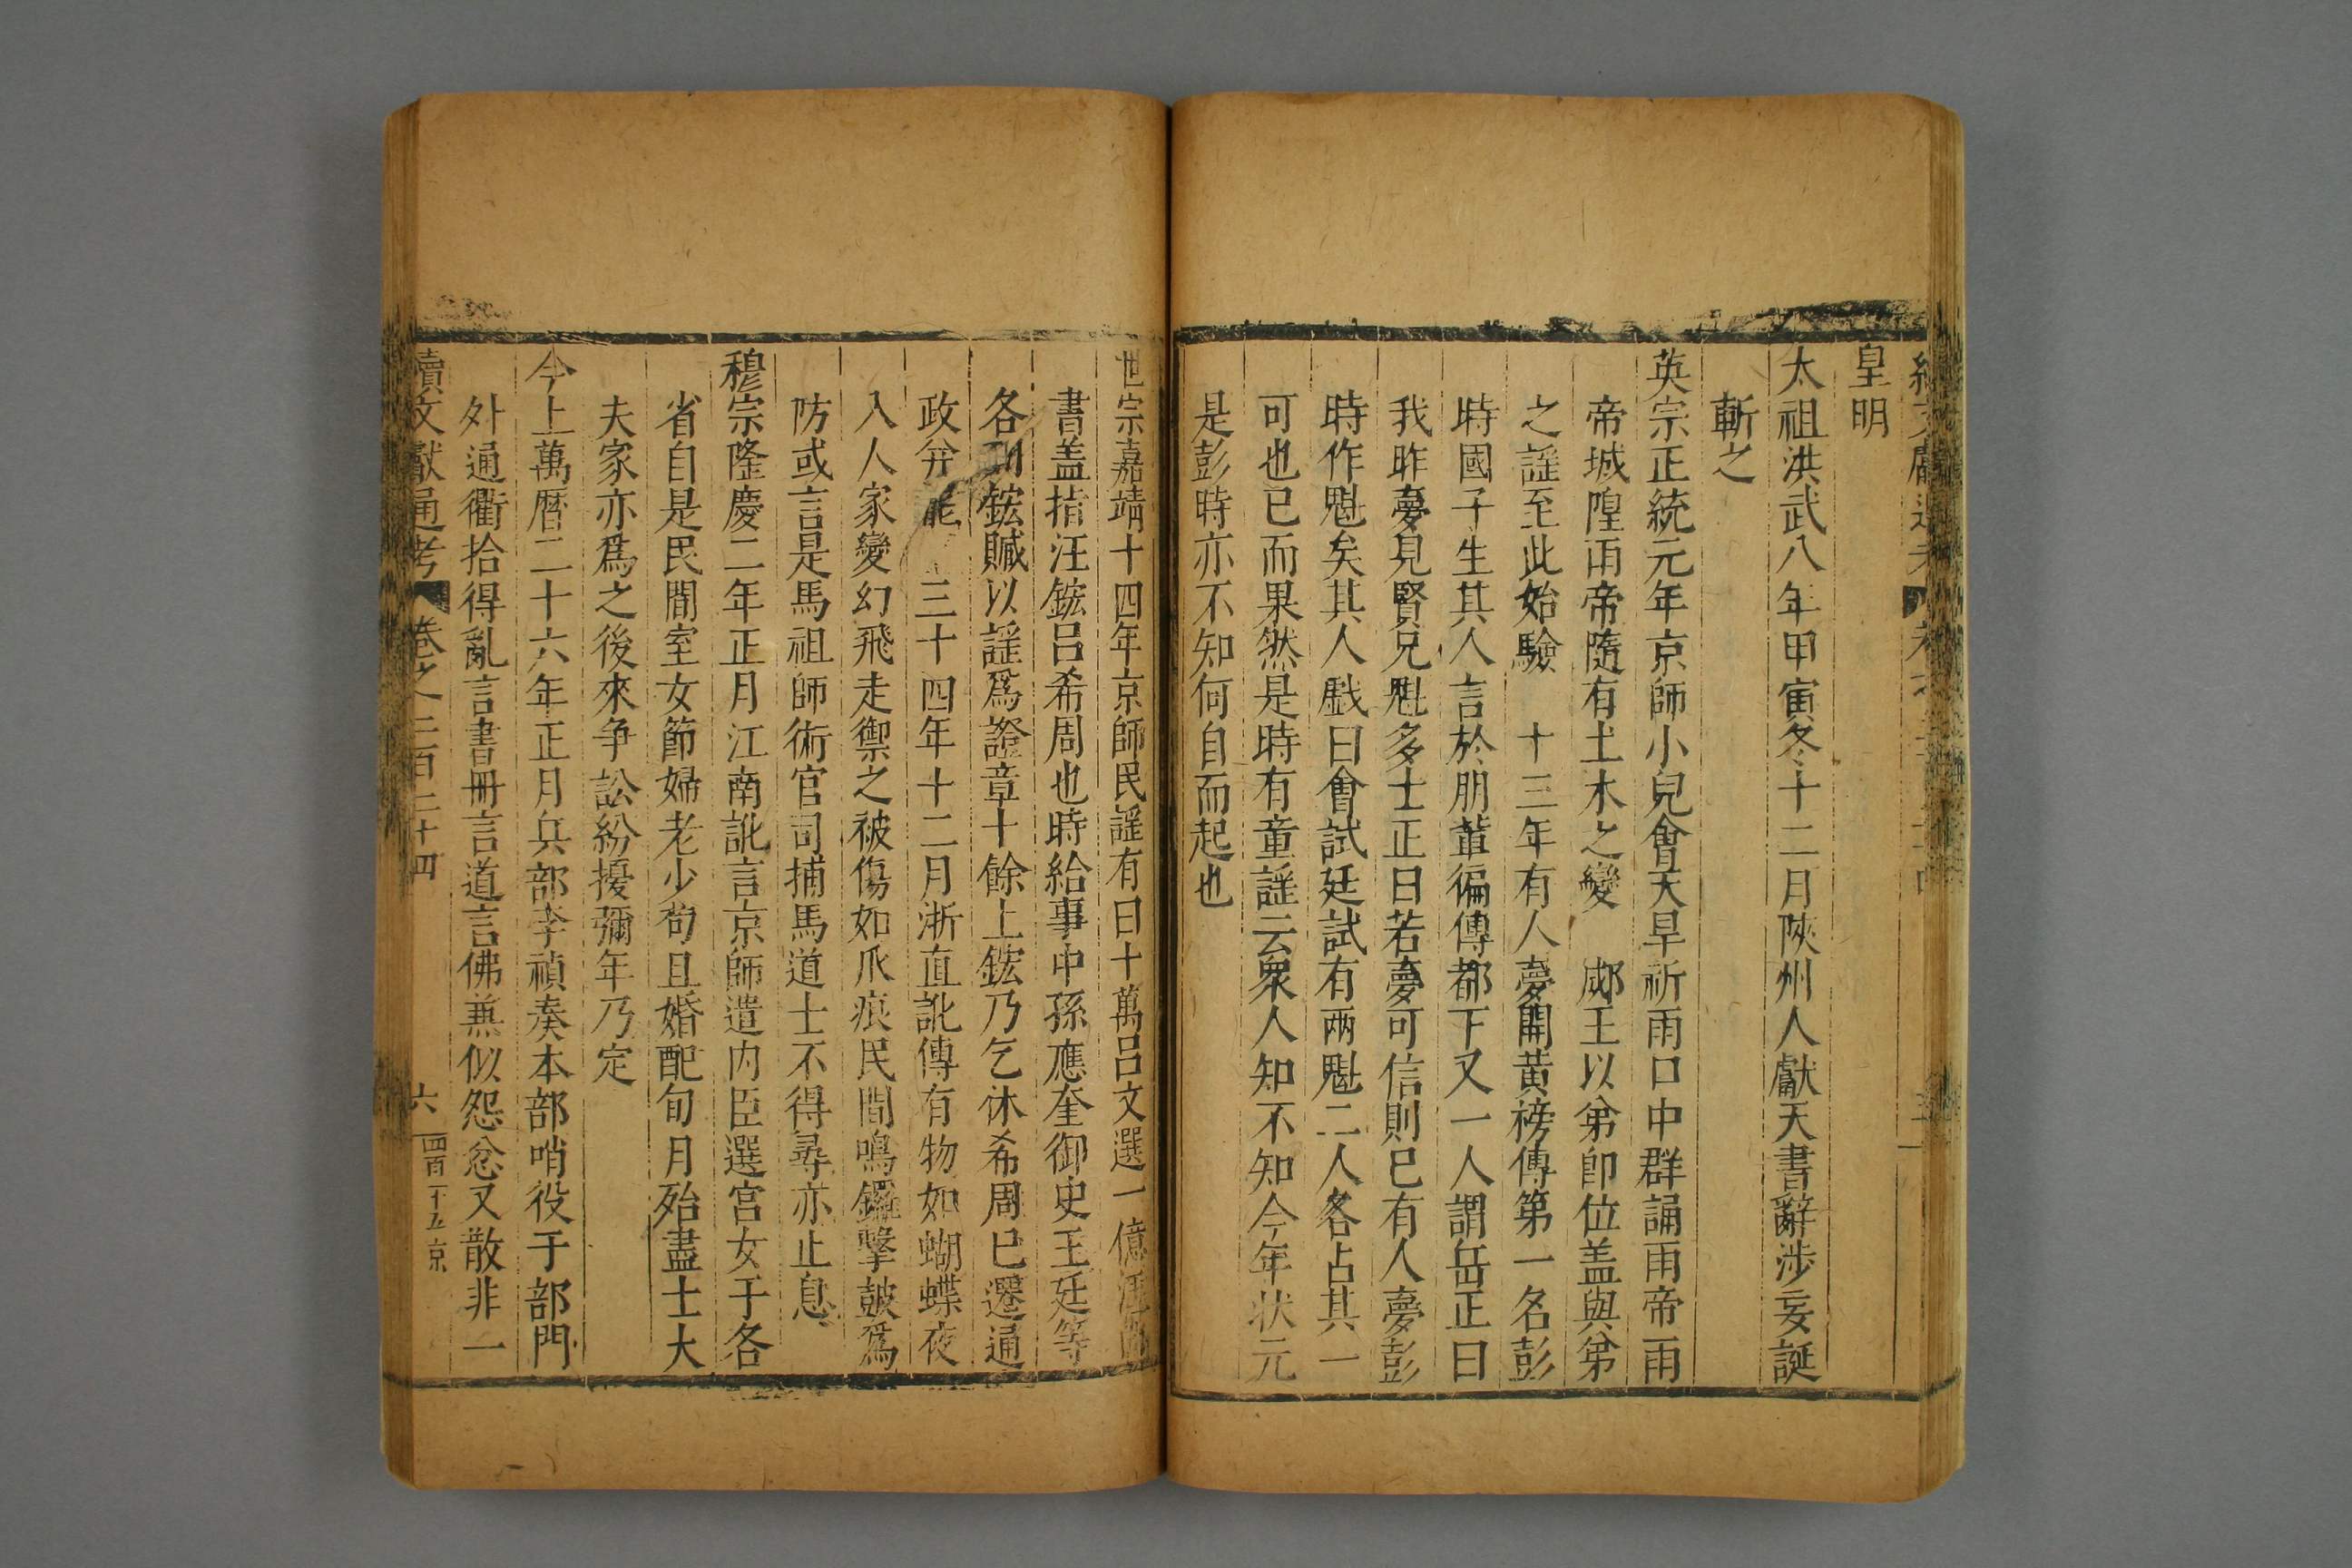 皇明
太祖洪武八年甲寅冬十二月陝州人獻天書辭涉妄誕
斬之
英宗正統元年京師小兒會天旱祈雨口中群誦雨帝雨
帝城隍雨帝隨有土木之變　郕王以弟卽位盖與弟
之謡至此始驗　十三年有人夢開黄榜傳第一名彭
時國子生其人言於朋軰徧傳都下又一人謂岳正曰
我昨夢見賢兄魁多士正曰若夢可信則已有人夢彭
時作魁矣其人戯曰會試廷試有兩魁二人各占其一
可也已而果然是時有童謡云衆人知不知今年状元
是彭時亦不知何自而起也
世宗嘉靖十四年京師民謡有曰十萬吕文選一億汪
書盖指汪鋐吕希周也時給事中孫應奎御史王廷等
各鋐贓以謡爲證章十餘上鋐乃乞休希周已遷通
政并　三十四年十二月浙直訛傳有物如蝴蝶夜
入人家變幻飛走禦之被傷如爪痕民間鳴鑼擊鼓爲
防或言是馬祖師術官司捕馬道士不得尋亦止息
穆宗隆慶二年正月江南訛言京師遣内臣選宫女于各
省自是民間室女節婦老少苟且婚配旬月殆盡士大
夫家亦爲之後來争訟紛擾彌年乃定
今上萬曆二十六年正月兵部李禎奏本部哨役于部門
外通衢拾得亂言書冊言道言佛無似怨忿又散非一
續文獻通考　卷之二百二十四　六　四百二十五　京